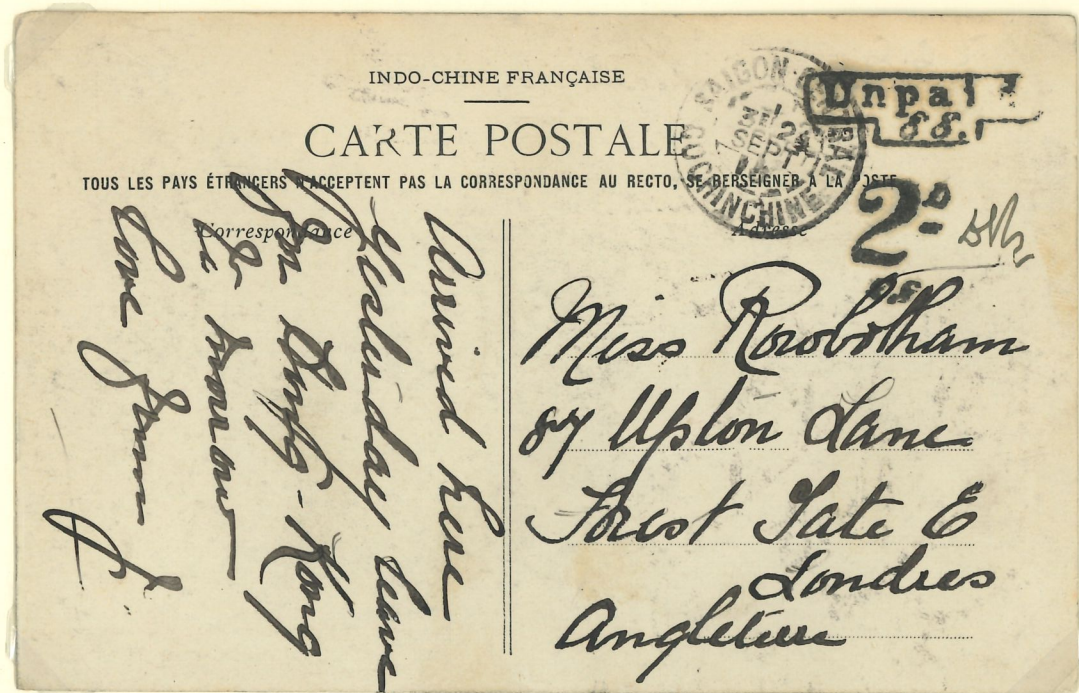 INDO-CHINE FRANÇAISE
CARTE POSTALE
TOUS LES PAYS ÉTRANGERS N'ACCEPTENT PAS LA CORRESPONDANCE AU RECTO, SE RERSEIGNER A LA POSTE
Correspondance
Adresse
SAIGON
COCHINCHINE
SEPT
Unpaid
2D
Arrived here
Yesterday leave
for Hong-Kong
to morrow
Love from
Miss Rowbotham
87 Upton Lane
Forest Gate E
Londres
Angleterre